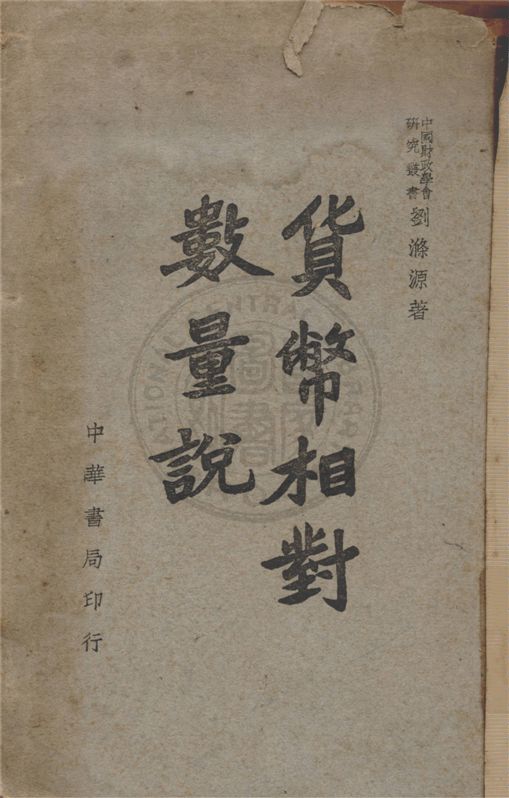 中國財政學會
研究叢書
劉滌源著
貨幣相對
數量說
中華書局印行